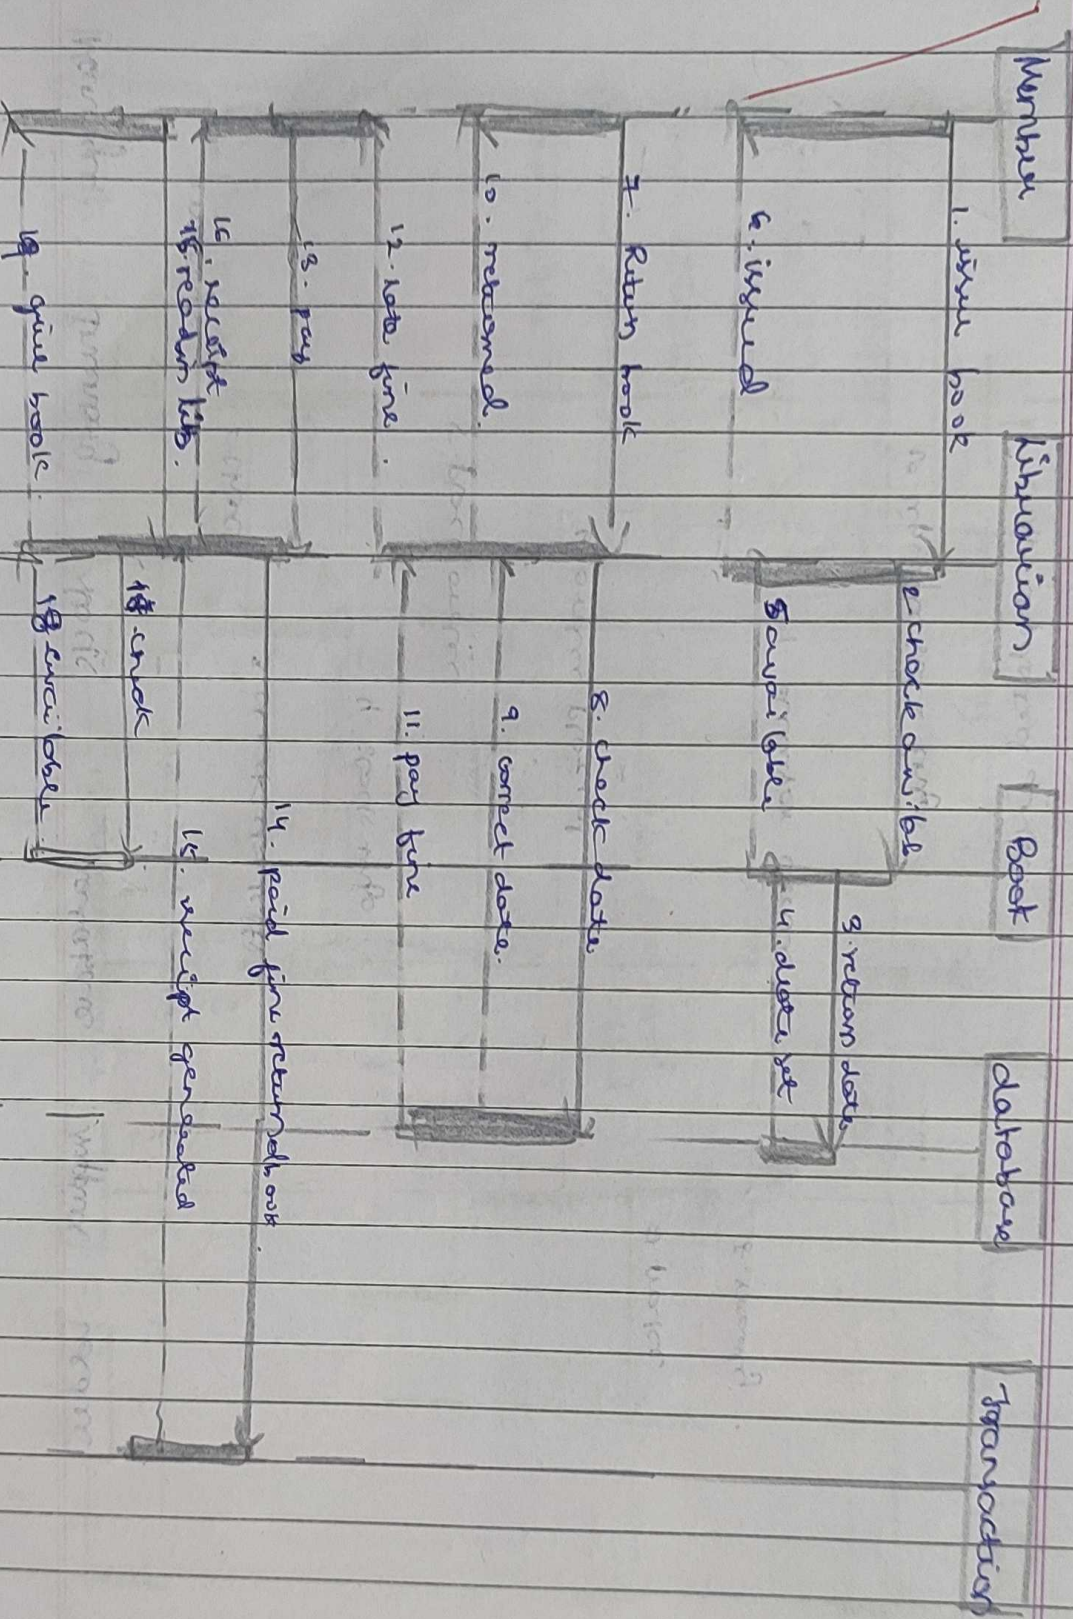 Member
Librarian
Book
database
Transaction
1. issue book
2 check availab
3. return date
4. date set
5 available
6. issued
7. Return book
8. check date
9. correct date.
10. returned.
11. pay fine
12. late fine.
13. pay
14. paid fine returned book.
15. reciept generated
16. reciept
read in lib.
18. check
19. give book.